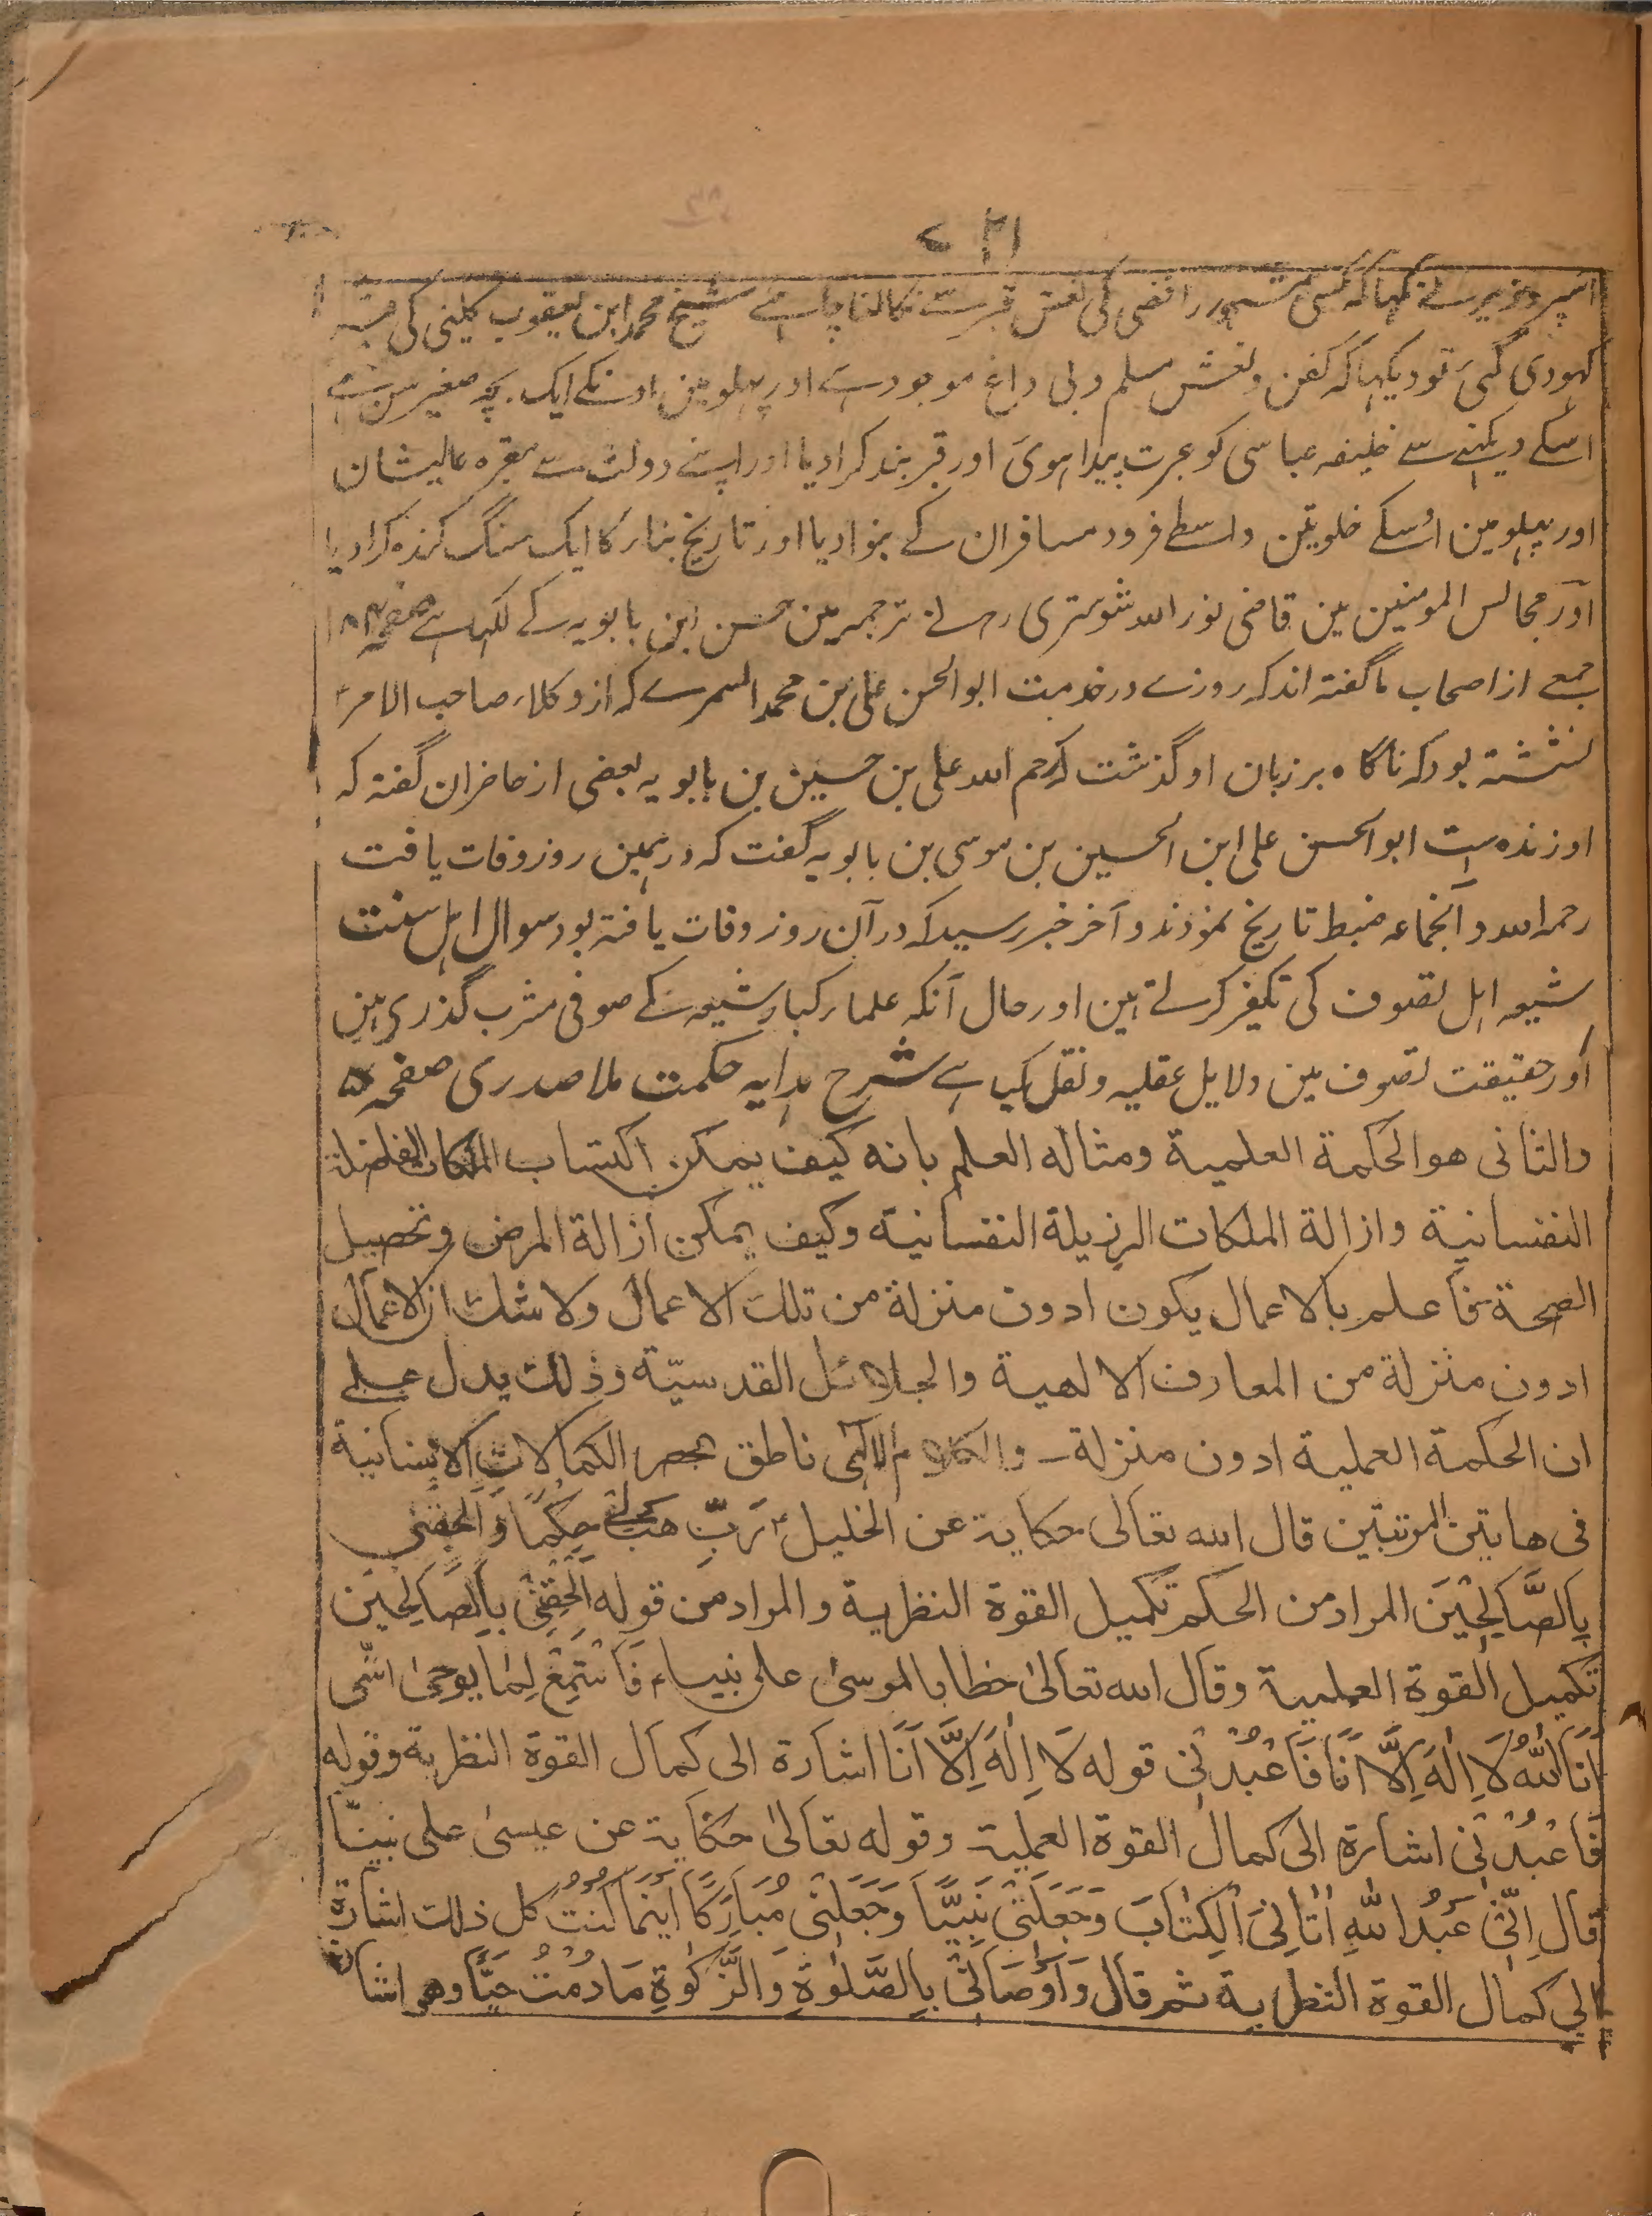 اسپر وزیر نے کہا کہ کسی مشہور رافضی کی نعش قبر سے نکالنا چاہئے شیخ محمد ابن یعقوب کلینی کی قبر
کہودی گئی تو دیکہا کہ کفن و نعش مسلم و بی داغ موجود ہے اور پہلو مین اونکے ایک بچہ صغیر سن ہے
اسکے دیکہنے سے خلیفہ عباسی کو عبرت پیدا ہوئ اور قبر بند کرا دیا اور اپنے دولت سے مقبرہ عالیشان
اور پہلو مین اُسکے خلوتین واسطے فرود مسافران کے بنوا دیا اور تاریخ بنا کا ایک سنگ کندہ کرا دیا
اور مجالس المومنین مین قاضی نور اللہ شوستری رہ نے ترجمہ مین حسن ابن بابویہ کے لکہا ہے صفحہ
جمعے از اصحاب ما گفتہ اند کہ روزے در خدمت ابو الحسن علی بن محمد السمرے کہ از وکلاء صاحب الامر
نشستہ بود کہ ناگاہ بر زبان او گذشت کہ رحم اللہ علی بن حسین بن بابویہ بعضی از حاضران گفتہ کہ
او زندہ است ابو الحسن علی ابن الحسین بن موسی بن بابویہ گفت کہ در ہمین روز وفات یافت
رحمہ اللہ و آنجماعہ ضبط تاریخ نمودند و آخر خبر رسید کہ در آن روز وفات یافتہ بود سوال اہل سنت
شیعہ اہل تصوف کی تکفیر کرتے ہین اور حال آنکہ علما کبار شیعہ کے صوفی مشرب گذری ہین
اور حقیقت تصوف مین دلایل عقلیہ و نقل کیا ہے شرح ہدایہ حکمت ملا صدری صفحہ
والثانی ھو الحکمة العلمیة ومثاله العلم بانه کیف یمکن اکتساب الملکات الفاضلة
النفسانیة وازالة الملکات الرزیلة النفسانیة وکیف یمکن ازالة المرض وتحصیل
الصحة فاعلم بالاعمال یکون ادون منزلة من تلک الاعمال ولا شک ان الاعمال
ادون منزلة من المعارف الالهیة والجلائل القدسیّة وذلک یدل علی
ان الحکمة العملیة ادون منزلة۔ والکلام الالٰهی ناطق بحصر الکمالات الانسانیة
فی هاتین المرتبتین قال الله تعالی حکایة عن الخلیل رَبِّ هَبْ لِی حُکْمًا وَّاَلْحِقْنِی
بِالصَّالِحِیْنَ المراد من الحکم تکمیل القوة النظریة والمراد من قوله اَلْحِقْنِی بِالصَّالِحِیْنَ
تکمیل القوة العملیة وقال الله تعالیٰ خطابا لموسیٰ علی نبینا فَاسْتَمِعْ لِمَا یُوحیٰ انّنی
اَنَا اللّٰهُ لَا اِلٰهَ اِلَّا اَنَا فَاعْبُدْنِی قوله لَا اِلٰهَ اِلَّا اَنَا اشارة الی کمال القوة النظریة وقوله
فَاعْبُدْنِی اشارة الی کمال القوة العملیة وقوله تعالیٰ حکایة عن عیسیٰ علی نبینا
قال اِنِّی عَبْدُ اللّٰهِ اٰتَانِیَ الْکِتٰابَ وَجَعَلَنِی نَبِیًّا وَجَعَلَنِی مُبَارَکًا اَیْنَمَا کُنْتُ کل ذلک اشارة
الی کمال القوة النظریة ثم قال وَاَوْصَانِی بِالصَّلٰوةِ وَالزَّکٰوةِ مَا دُمْتُ حَیًّا وهو اشا